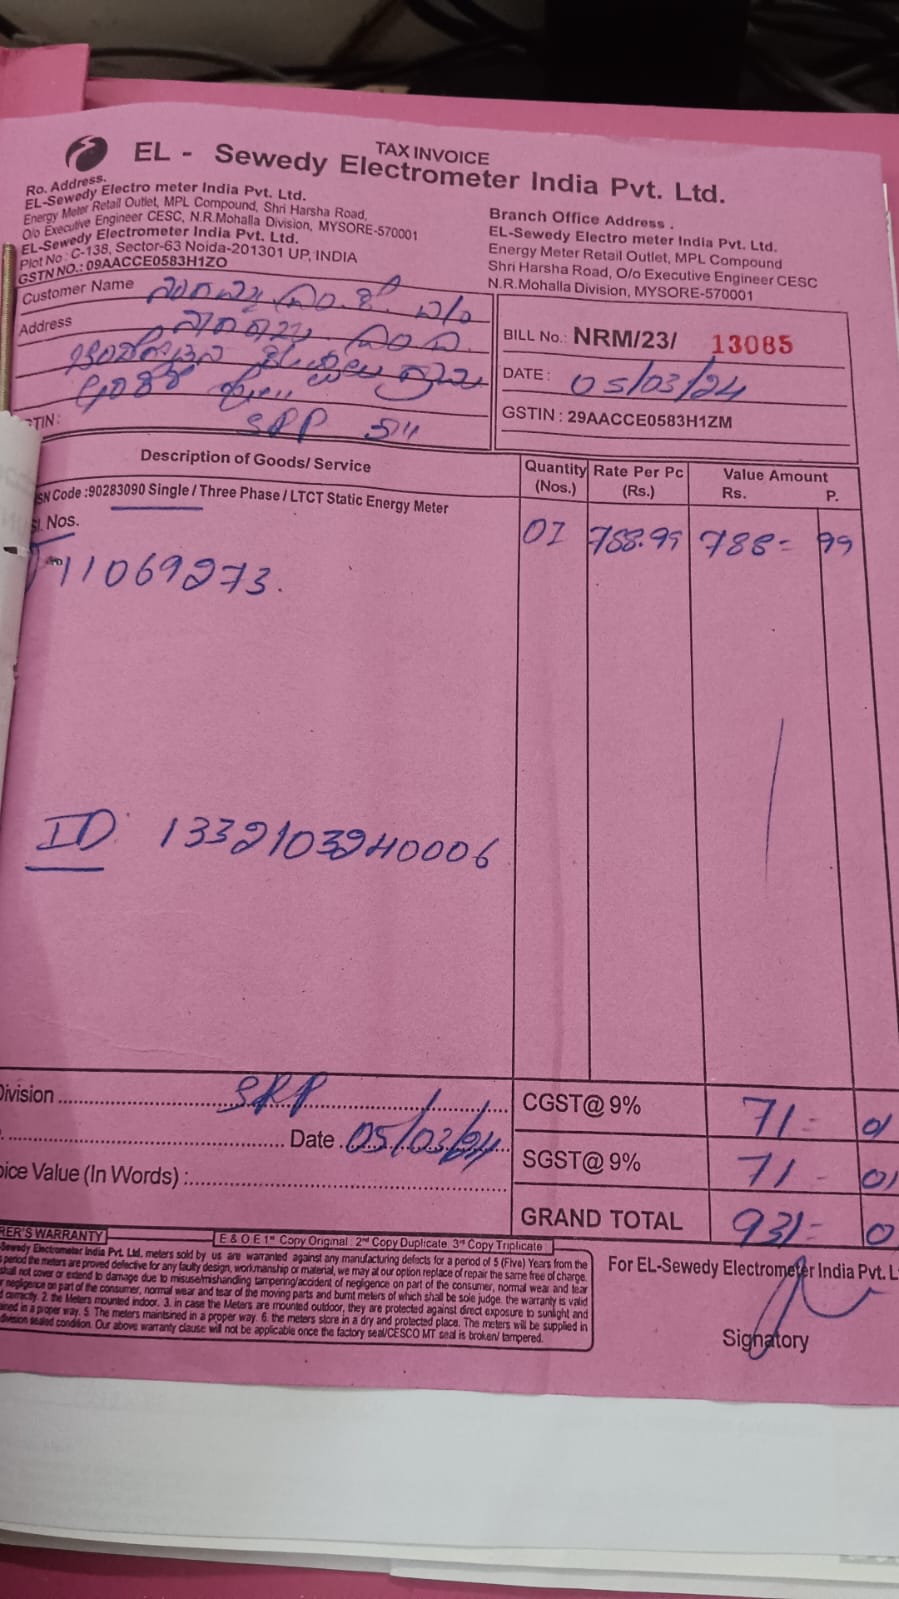 TAX INVOICE
EL - Sewedy Electrometer India Pvt. Ltd.
Ro. Address.
EL-Sewedy Electro meter India Pvt. Ltd.
Energy Meter Retail Outlet, MPL Compound, Shri Harsha Road,
O/o Executive Engineer CESC, N.R.Mohalla Division, MYSORE-570001
EL-Sewedy Electrometer India Pvt. Ltd.
Plot No : C-138, Sector-63 Noida-201301 UP, INDIA
GSTN NO.: 09AACCE0583H1ZO
Branch Office Address .
EL-Sewedy Electro meter India Pvt. Ltd.
Energy Meter Retail Outlet, MPL Compound
Shri Harsha Road, O/o Executive Engineer CESC
N.R.Mohalla Division, MYSORE-570001
Customer Name
Address
TIN:
SRP
BILL No.: NRM/23/ 13085
DATE: 05/03/24
GSTIN : 29AACCE0583H1ZM
Description of Goods/ Service
Quantity (Nos.)
Rate Per Pc (Rs.)
Value Amount
Rs. P.
SN Code :90283090 Single / Three Phase / LTCT Static Energy Meter
Sl. Nos.
01 788.99 788= 99
11069273.
ID: 1332103240006
Division SRP
Date 05/03/24
oice Value (In Words) :
CGST@ 9% 71- 01
SGST@ 9% 71- 01
GRAND TOTAL 931- 0
RER'S WARRANTY
E & O E 1st Copy Original 2nd Copy Duplicate 3rd Copy Triplicate
Sewedy Electrometer India Pvt. Ltd. meters sold by us are warranted against any manufacturing defects for a period of 5 (Five) Years from the
period the meters are proved defective for any faulty design, workmanship or material, we may at our option replace of repair the same free of charge.
shall not cover or extend to damage due to misuse/mishandling tampering/accident of negligence on part of the consumer, normal wear and tear
or negligence on part of the consumer, normal wear and tear of the moving parts and burnt meters of which shall be sole judge. the warranty is valid
correctly. 2. the Meters mounted indoor. 3. in case the Meters are mounted outdoor, they are protected against direct exposure to sunlight and
in a proper way. 5. The meters maintsined in a proper way. 6. the meters store in a dry and protected place. The meters will be supplied in
division sealed condition. Our above warranty clause will not be applicable once the factory seal/CESCO MT seal is broken/ tampered.
For EL-Sewedy Electrometer India Pvt. L
Signatory